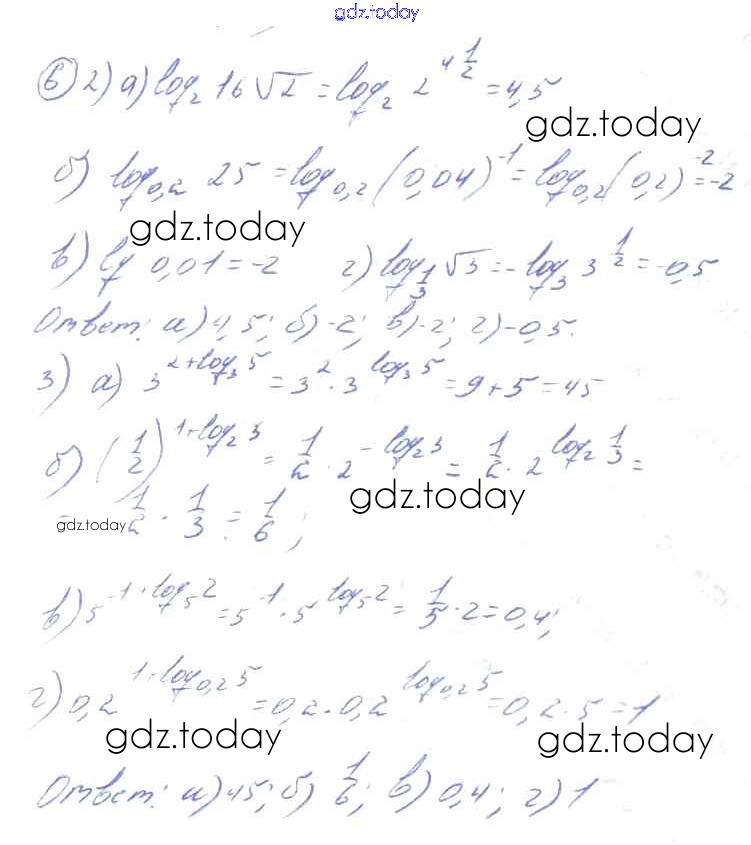 gdz.today
6) 2) а) log₂ 16√2 = log₂ 2^(4 1/2) = 4,5
gdz.today
б) log₀,₂ 25 = log₀,₂ (0,04)⁻¹ = log₀,₂ (0,2)⁻² = -2
gdz.today
в) lg 0,01 = -2   г) log_(1/3) √3 = -log₃ 3^(1/2) = -0,5
Ответ: а) 4,5; б) -2; в) -2; г) -0,5.
3) а) 3^(2+log₃ 5) = 3² · 3^(log₃ 5) = 9 + 5 = 45
б) (1/2)^(1+log₂ 3) = 1/2 · 2^(-log₂ 3) = 1/2 · 2^(log₂ 1/3) =
gdz.today
gdz.today = 1/2 · 1/3 = 1/6;
в) 5^(-1+log₅ 2) = 5⁻¹ · 5^(log₅ 2) = 1/5 · 2 = 0,4;
г) 0,2^(1+log₀,₂ 5) = 0,2 · 0,2^(log₀,₂ 5) = 0,2 · 5 = 1
gdz.today gdz.today
Ответ: а) 45; б) 1/6; в) 0,4; г) 1